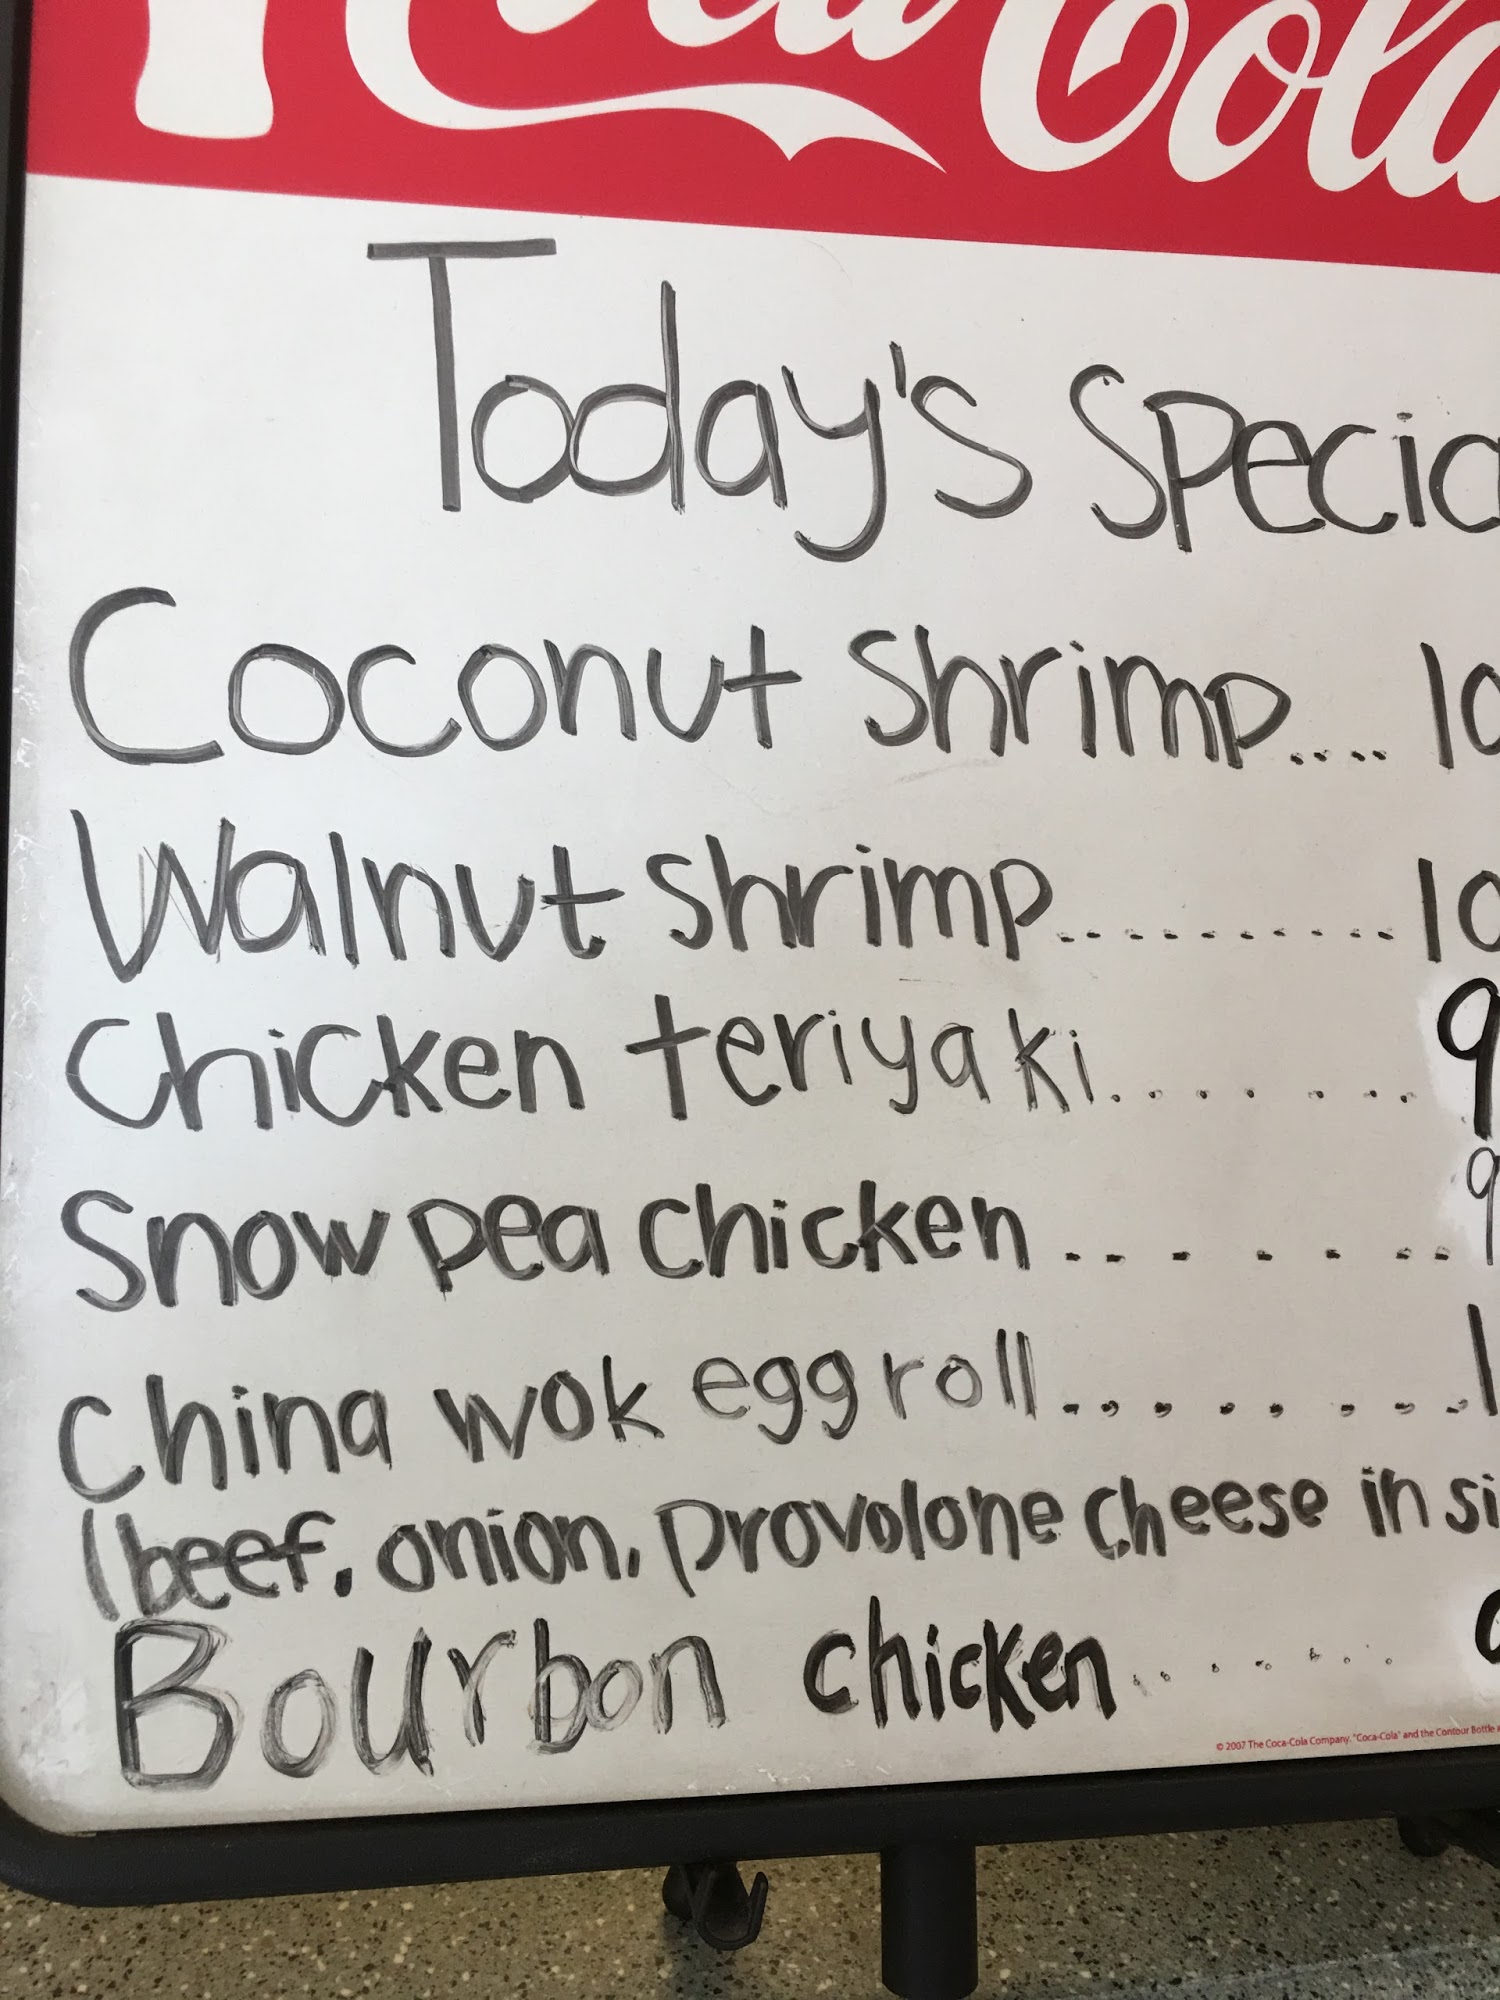 Coca-Cola
Today's Specia
Coconut Shrimp.... 10
Walnut Shrimp.......... 10
Chicken teriyaki....... 9
Snow pea chicken....... 9
China wok egg roll........ 1
(beef, onion, provolone cheese in si
Bourbon chicken....... 9
© 2007 The Coca-Cola Company. "Coca-Cola" and the Contour Bottle